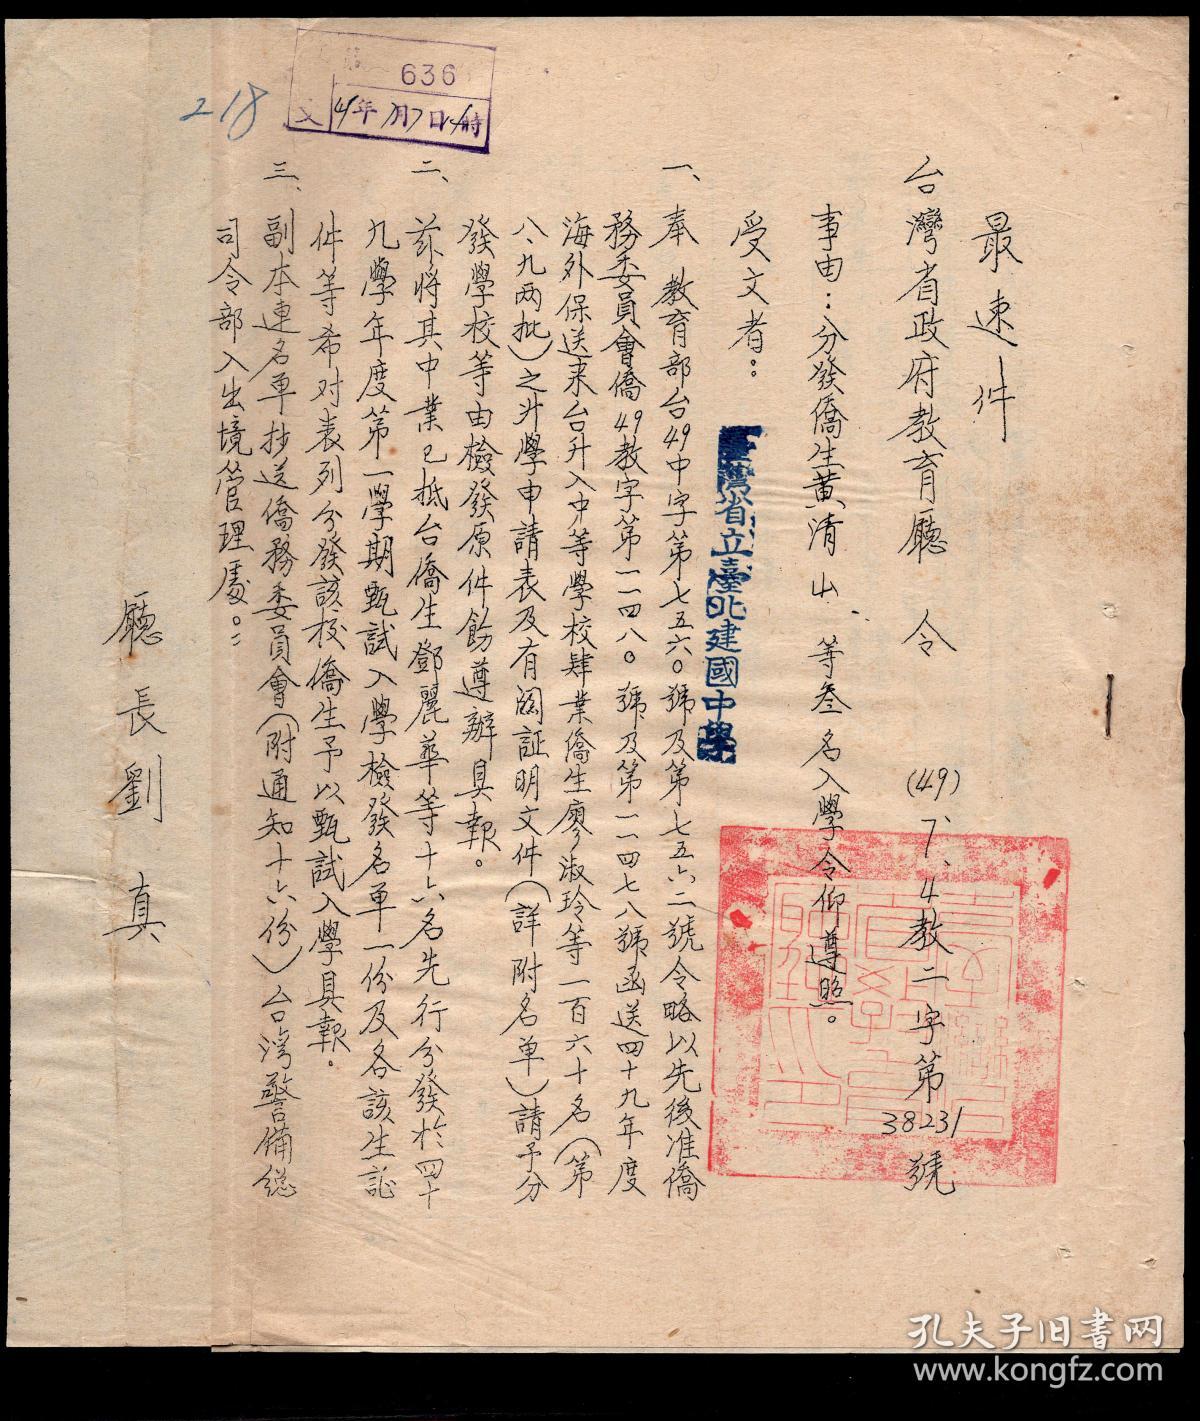 最速件
台灣省政府教育廳 令 (49) 7.4 教二字第 38231 號
事由：分發僑生黄清山 等叁名入學令仰遵照。
受文者：
臺灣省立臺北建國中學
一、奉 教育部台49中字第七五六0號及第七五六二號令略以先後准僑
務委員會僑49教字第一一四八0號及第一一四七八號函送四十九年度
海外保送來台升入中等學校肄業僑生廖淑玲等一百六十名（第
八、九两批）之升學申請表及有関証明文件（詳附名单）請予分
發學校等由檢發原件飭遵辦具報。
二、茲將其中業已抵台僑生鄧麗華等十六名先行分發於四十
九學年度第一學期甄試入學檢發名单一份及各該生証
件等希对表列分發該校僑生予以甄試入學具報。
三、副本連名单抄送僑務委員會（附通知十六份）台湾警備総
司令部入出境管理處。
廳長劉 真
636
年 月 日 時
文
218
孔夫子旧书网
www.kongfz.com